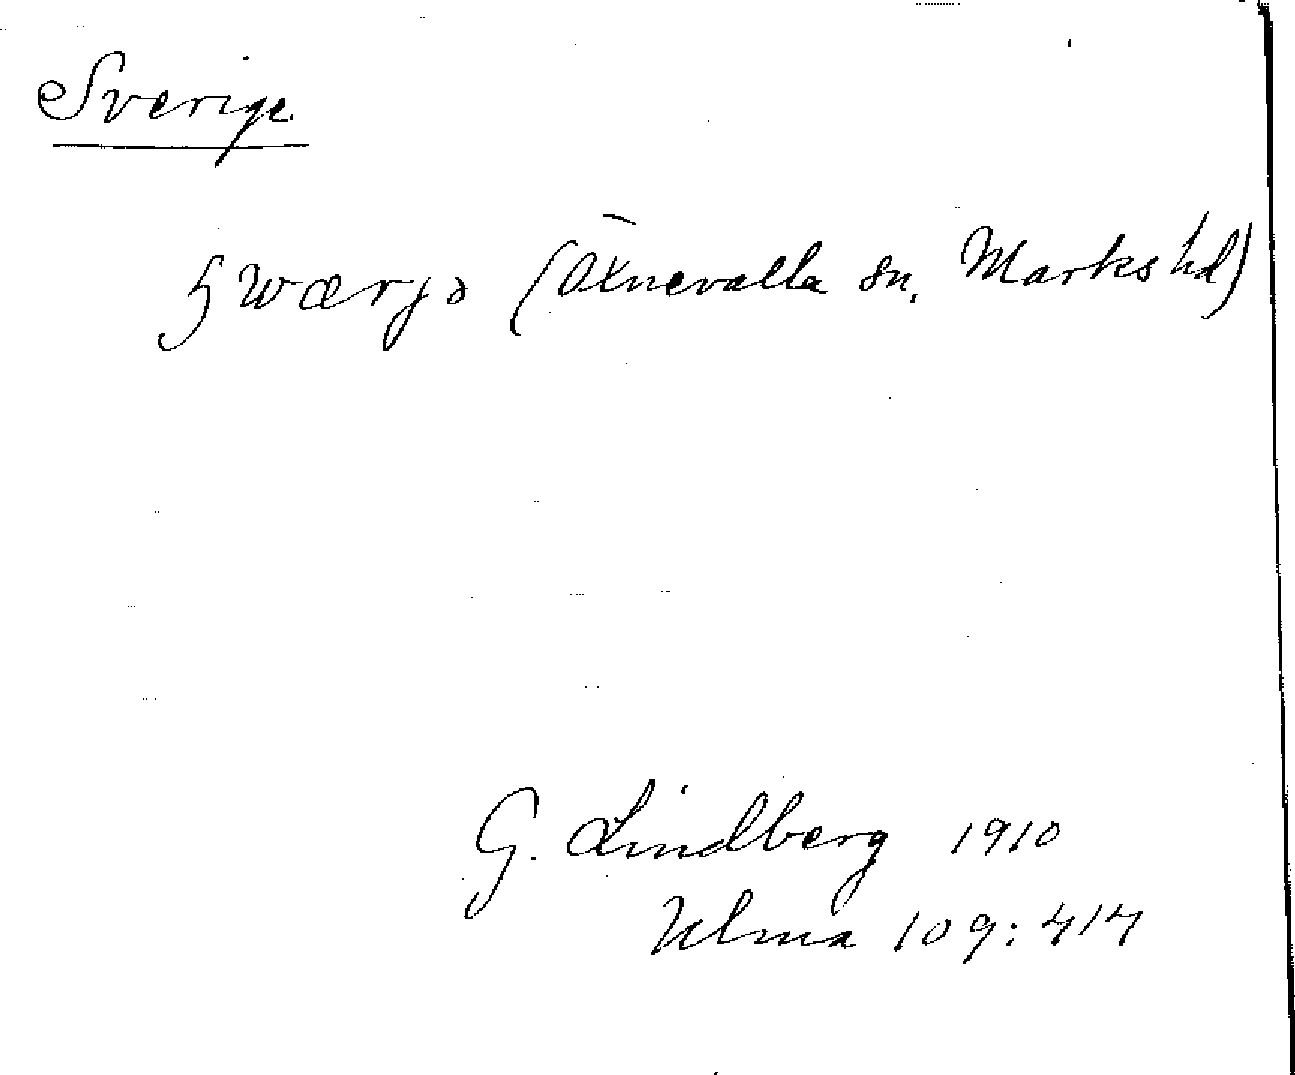 Sverige
ʃwærjə (Öxnevalla sn. Marks hd)
G. Lindberg 1910
Ulma 109:414